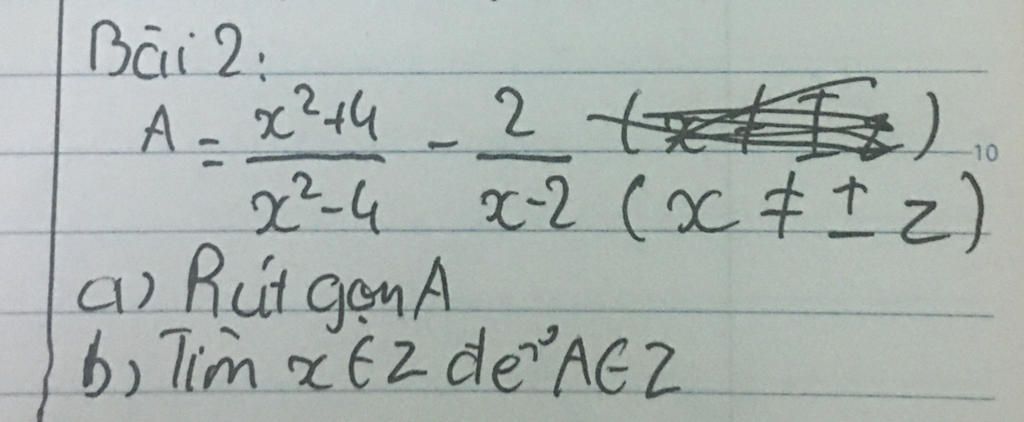 Bài 2:
A = \frac{x²+4}{x²-4} - \frac{2}{x-2} (x ≠ ± 2)
10
a) Rút gọn A
b) Tìm x ∈ Z để A ∈ Z